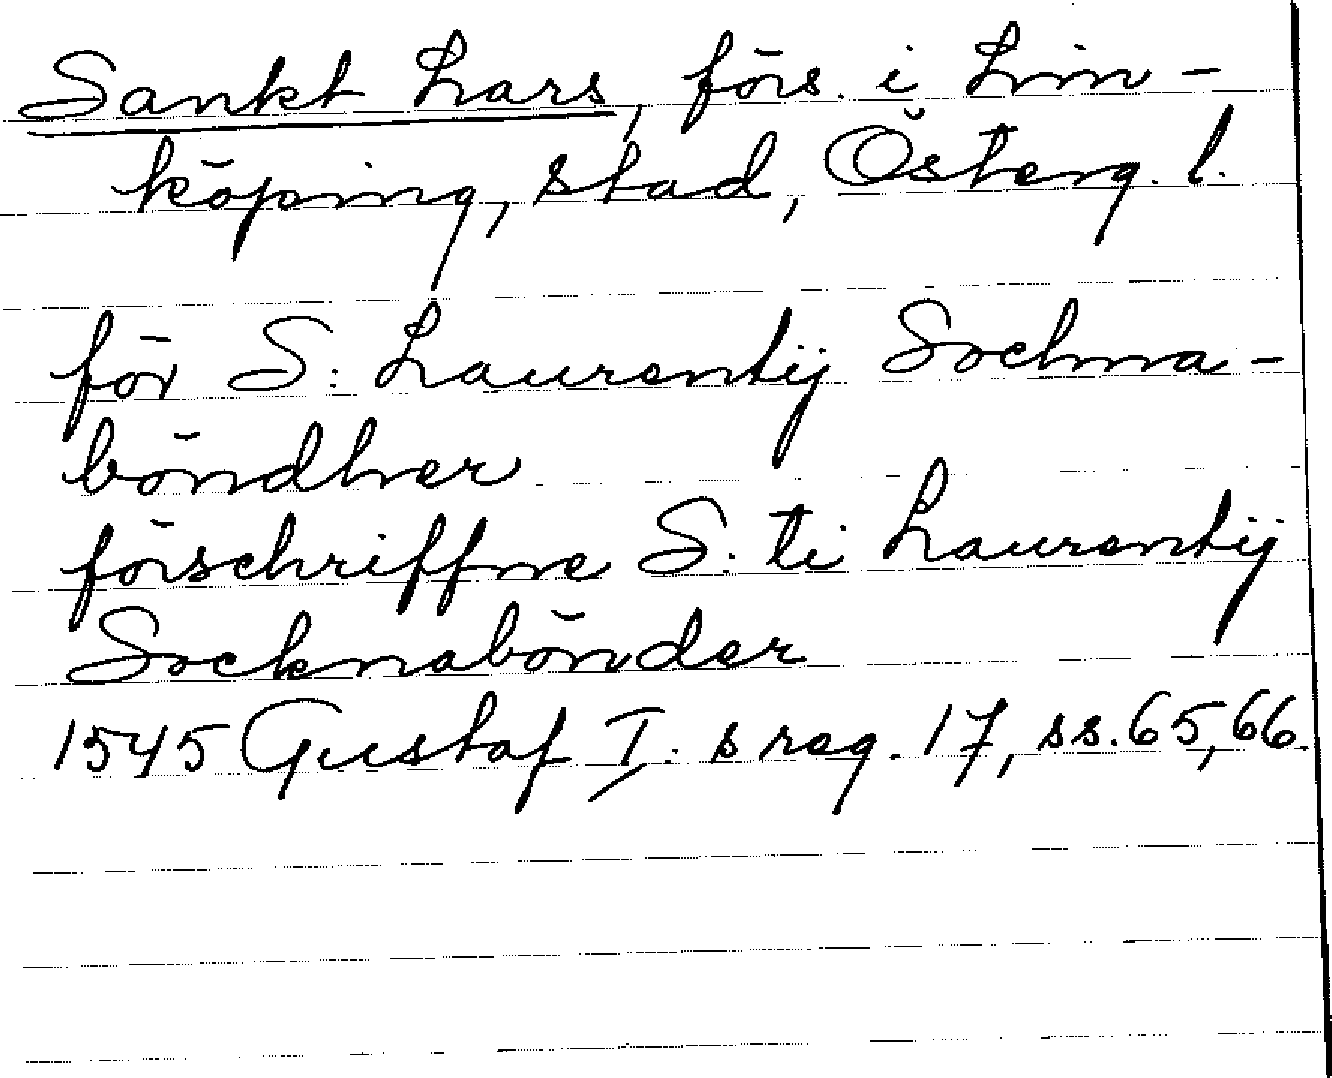 Sankt Lars, förs. i Lin-
köping, stad, Österg. l.
för S: Laurentij Sochna-
böndher
förschriffne S. ti Laurentij
Socknabönder
1545 Gustaf I. s reg. 17, ss. 65, 66.